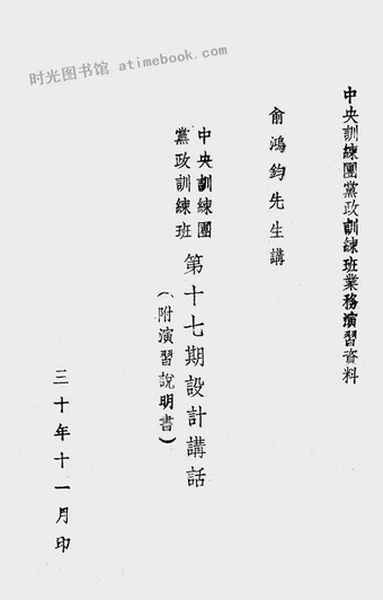 时光图书馆 atimebook.com
中央訓練團黨政訓練班業務演習資料
俞鴻鈞先生講
中央訓練團
黨政訓練班
第十七期設計講話
(附演習說明書)
三十年十一月印